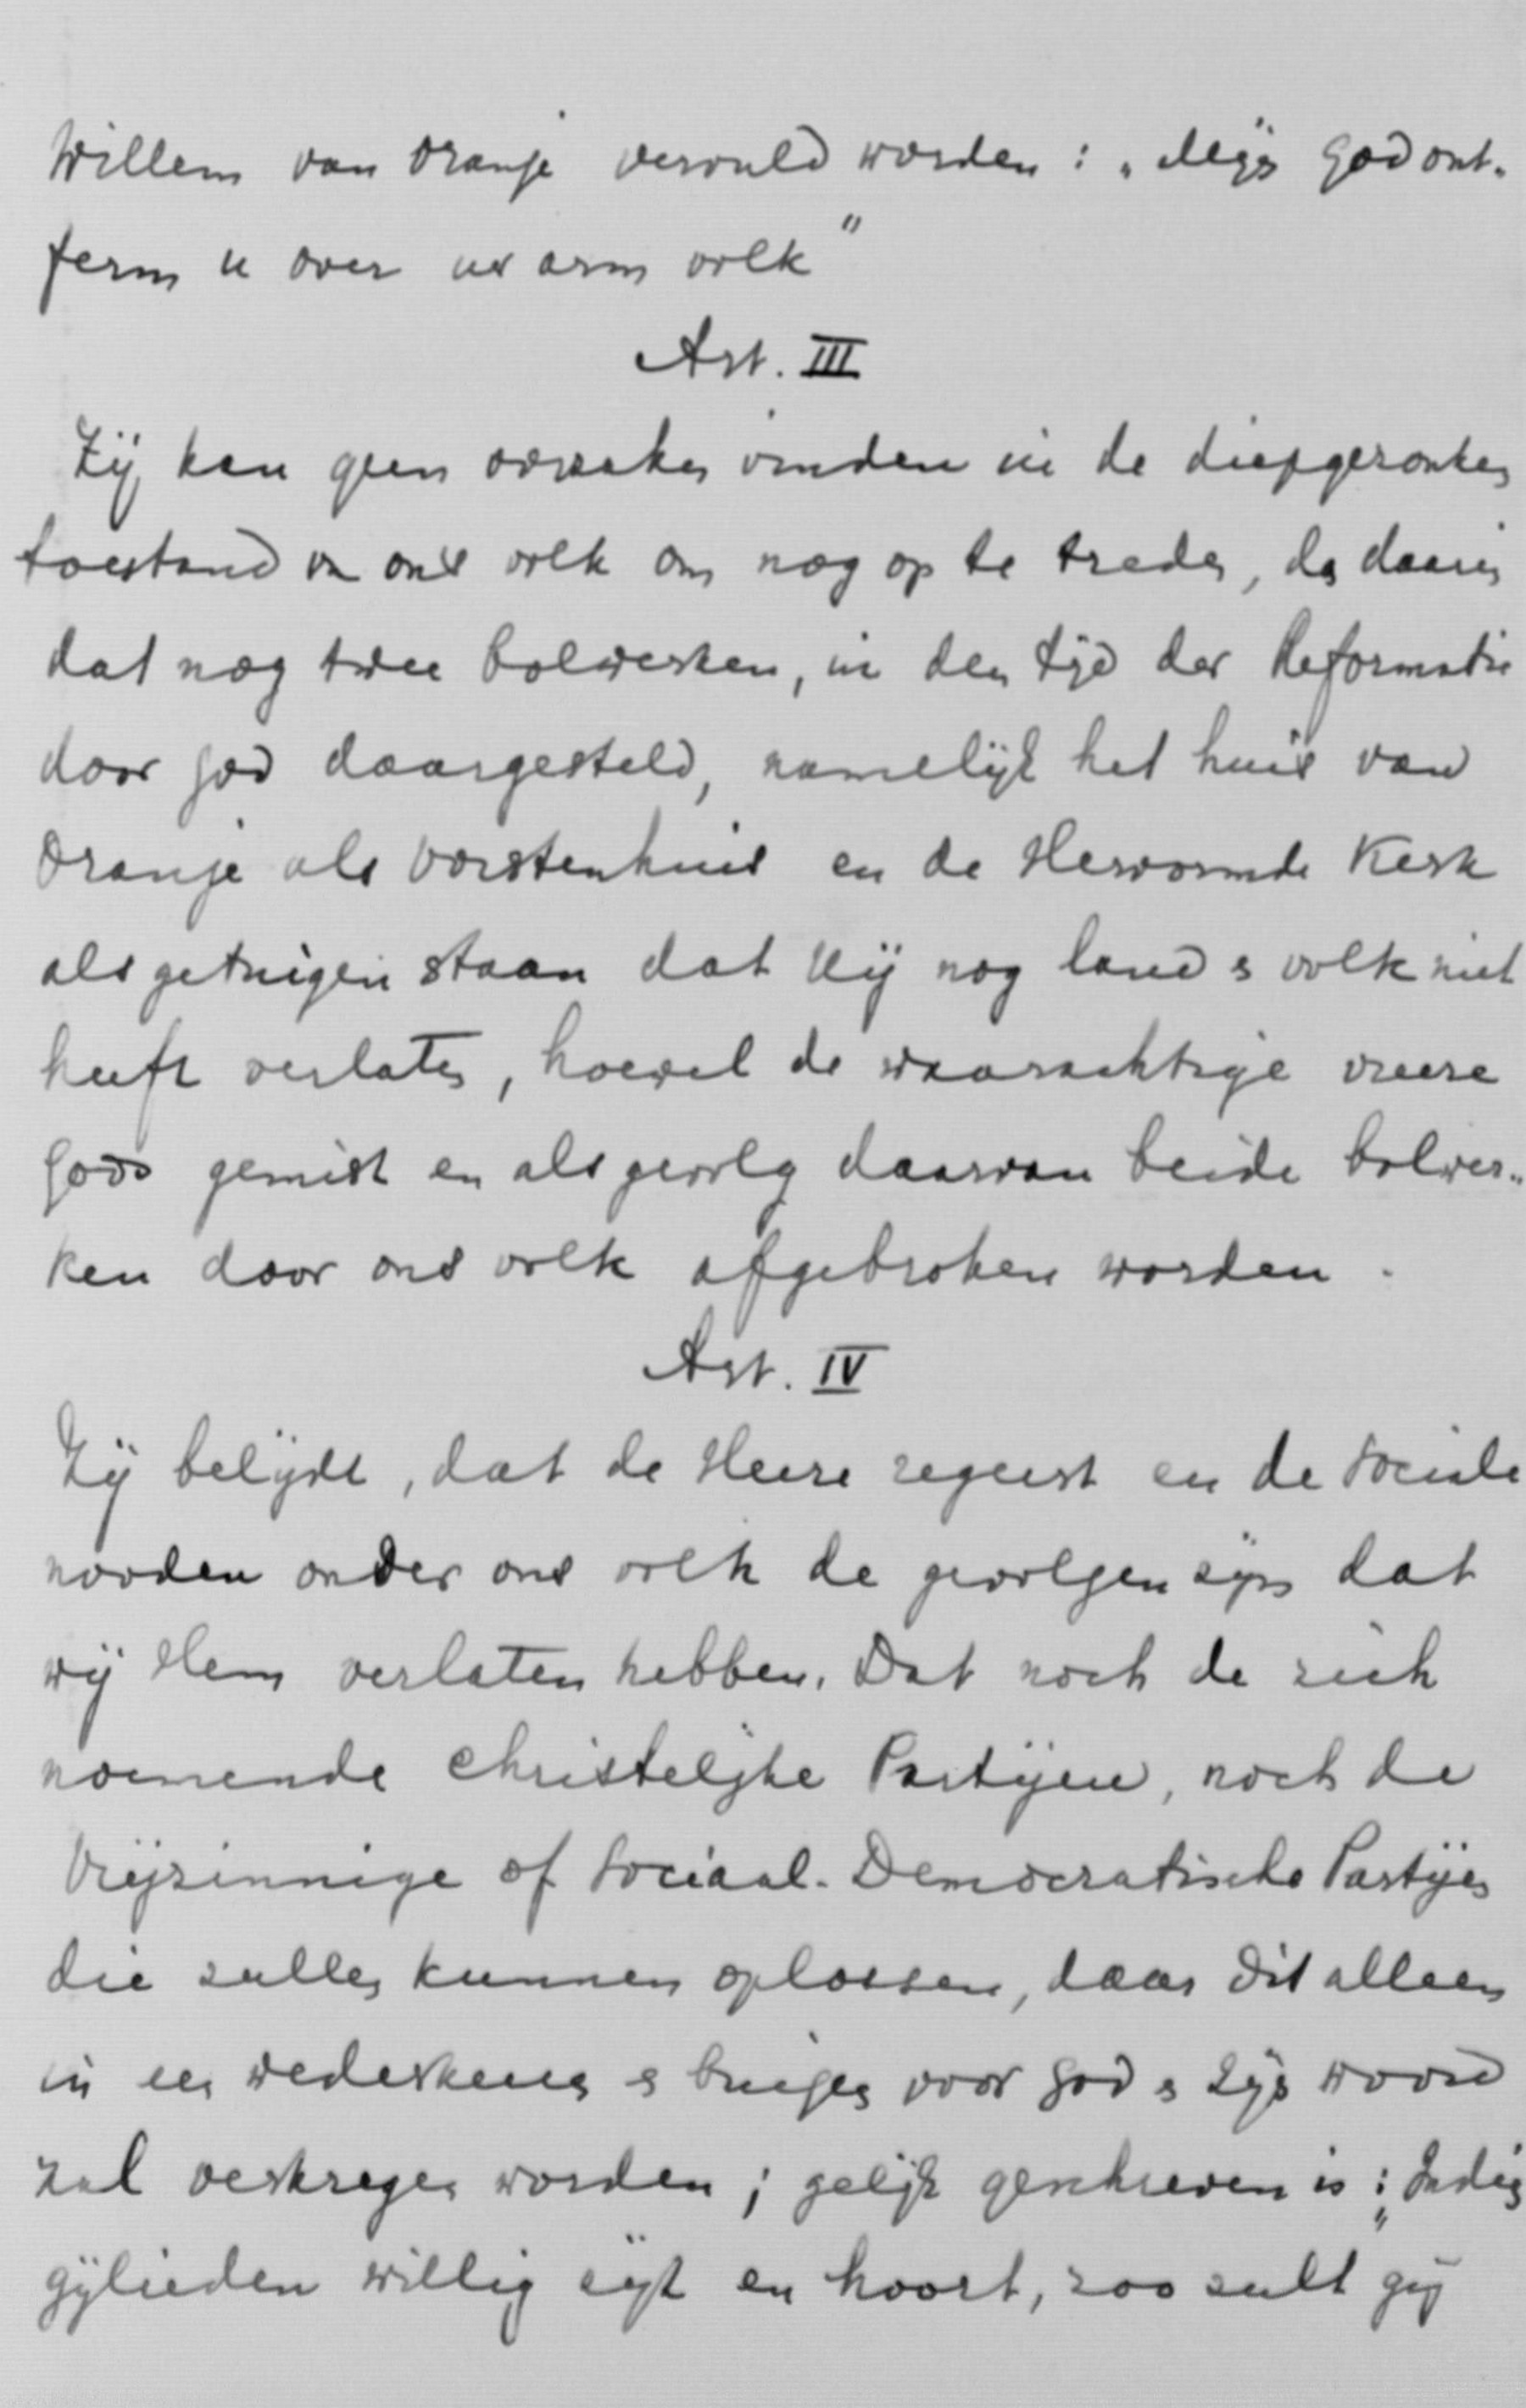 Willem van Oranje vervuld worden: „Mijn God ont-
ferm u over uw arm volk”
Art. III
Zij kan geen oorzaken vinden in de diepgezonken
toestand van ons volk om nog op te treden, dan daarin
dat nog twee bolwerken, in den tijd der Reformatie
door God daargesteld, namelijk het huis van
Oranje als Vorstenhuis en de Hervormde Kerk
als getuigen staan dat Hij nog land & volk niet
heeft verlaten, hoewel de waarachtige vreeze
Gods gemist en als gevolg daarvan beide bolwer-
ken door ons volk afgebroken worden.
Art. IV
Zij belijdt, dat de Heere regeert en de Sociale
nooden onder ons volk de gevolgen zijn dat
wij Hem verlaten hebben. Dat noch de zich
noemende Christelijke Partijen, noch de
Vrijzinnige of Sociaal-Democratische Partijen
die zullen kunnen oplossen, daar dit alleen
in een wederkeeren & buigen voor God & Zijn woord
zal verkregen worden; gelijk geschreven is: „Indien
gijlieden willig zijt en hoort, zoo zult gij